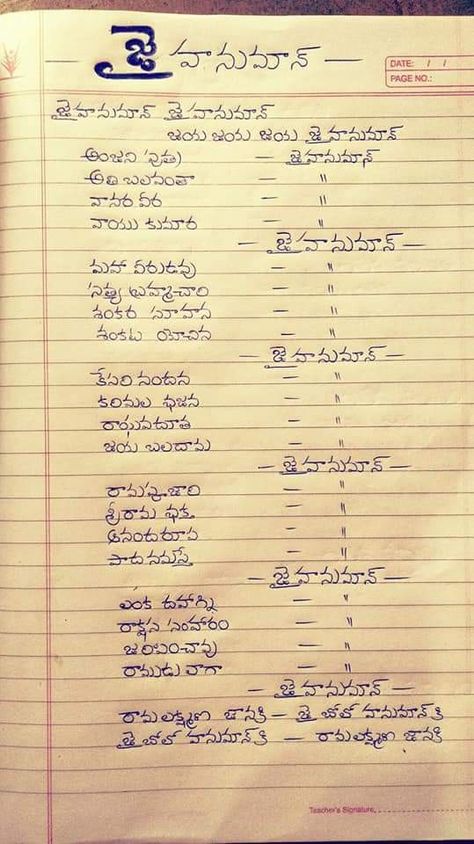 — జై హనుమాన్ —
DATE: / /
PAGE NO.:
జైహనుమాన్ జైహనుమాన్
జయ జయ జయ జైహనుమాన్
అంజని పుత్ర — జైహనుమాన్
అతి బలవంతా — "
వానర వీర — "
వాయు కుమార — "
— జైహనుమాన్ —
మహా వీరుడవు — "
సత్య బ్రహ్మచారి — "
శంకర — "
శంకట — "
— జైహనుమాన్ —
కేసరి నందన — "
కరిమల భజన — "
రాఘవదూత — "
జయ బలదామ — "
— జైహనుమాన్ —
రామపూజారి — "
శ్రీరామ భక్త — "
ఆనందరూప — "
పాద నమస్తే — "
— జైహనుమాన్ —
లంక దహాగ్ని — "
రాక్షస సంహారం — "
జరిపించావు — "
రాముడు రాగా — "
— జైహనుమాన్ —
రామలక్ష్మణ జానకి — జై బోలో హనుమాన్ కి
జై బోలో హనుమాన్ కి — రామలక్ష్మణ జానకి
Teacher's Signature